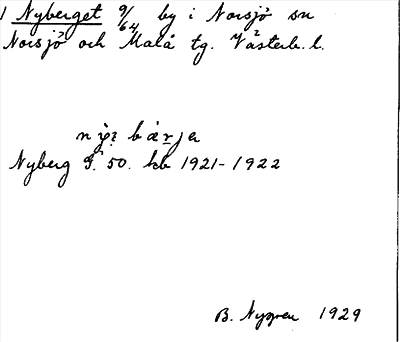 1 Nyberget 9/64 by i Norsjö sn
Norsjö och Malå tg. Västerb. l.
Nyberg S. 50. hb 1921-1922
B. Nygren 1929